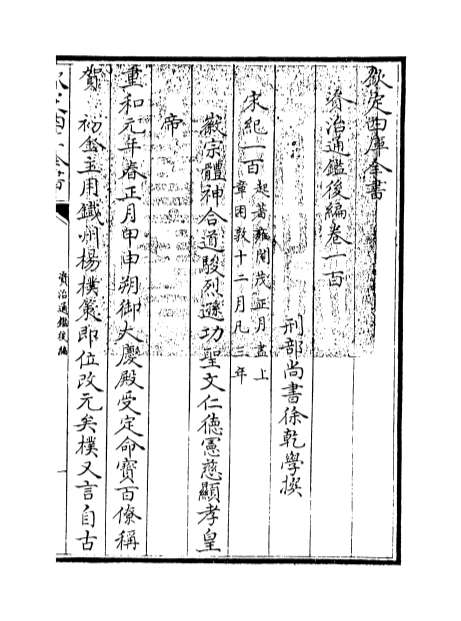 欽定四庫全書
資治通鑑後編卷一百
刑部尚書徐乾學撰
宋紀一百起著雍閹茂正月盡上
章困敦十二月凡三年
徽宗體神合道駿烈遜功聖文仁德憲慈顯孝皇
帝
重和元年春正月甲申朔御大慶殿受定命寶百僚稱
賀 初金主用鐵州楊樸策即位改元矣樸又言自古
欽定四庫全書
資治通鑑後編
一